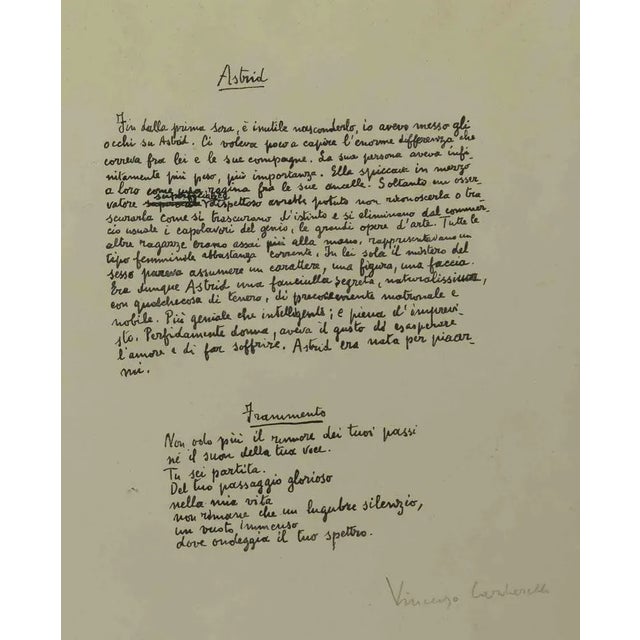 Astrid
Fin dalla prima sera, è inutile nasconderlo, io avevo messo gli
occhi su Astrid. Ci voleva poco a capire l'enorme differenza che
correva fra lei e le sue compagne. La sua persona aveva infi-
nitamente più peso, più importanza. Ella spiccava in mezzo
a loro come una regina fra le sue ancelle. Soltanto un osser-
superficiale
vatore dispettoso avrebbe potuto non riconoscerla o tra-
scurarla come si trascurano d'istinto e si eliminano dal commer-
cio usuale i capolavori del genio, le grandi opere d'arte. Tutte le
altre ragazze erano assai più alla mano, rappresentavano un
tipo femminile abbastanza corrente. In lei sola il mistero del
sesso pareva assumere un carattere, una figura, una faccia.
Era dunque Astrid una fanciulla segreta, naturalissima,
con qualchecosa di tenero, di precocemente matronale e
nobile. Più geniale che intelligente; e piena d'imprevi-
sto. Perfidamente donna, aveva il gusto di esasperare
l'amore e di far soffrire. Astrid era nata per piacer-
mi.
Frammento
Non odo più il rumore dei tuoi passi
né il suon della tua voce.
Tu sei partita.
Del tuo passaggio glorioso
nella mia vita
non rimane che un lugubre silenzio,
un vuoto immenso
dove ondeggia il tuo spettro.
Vincenzo Cardarelli